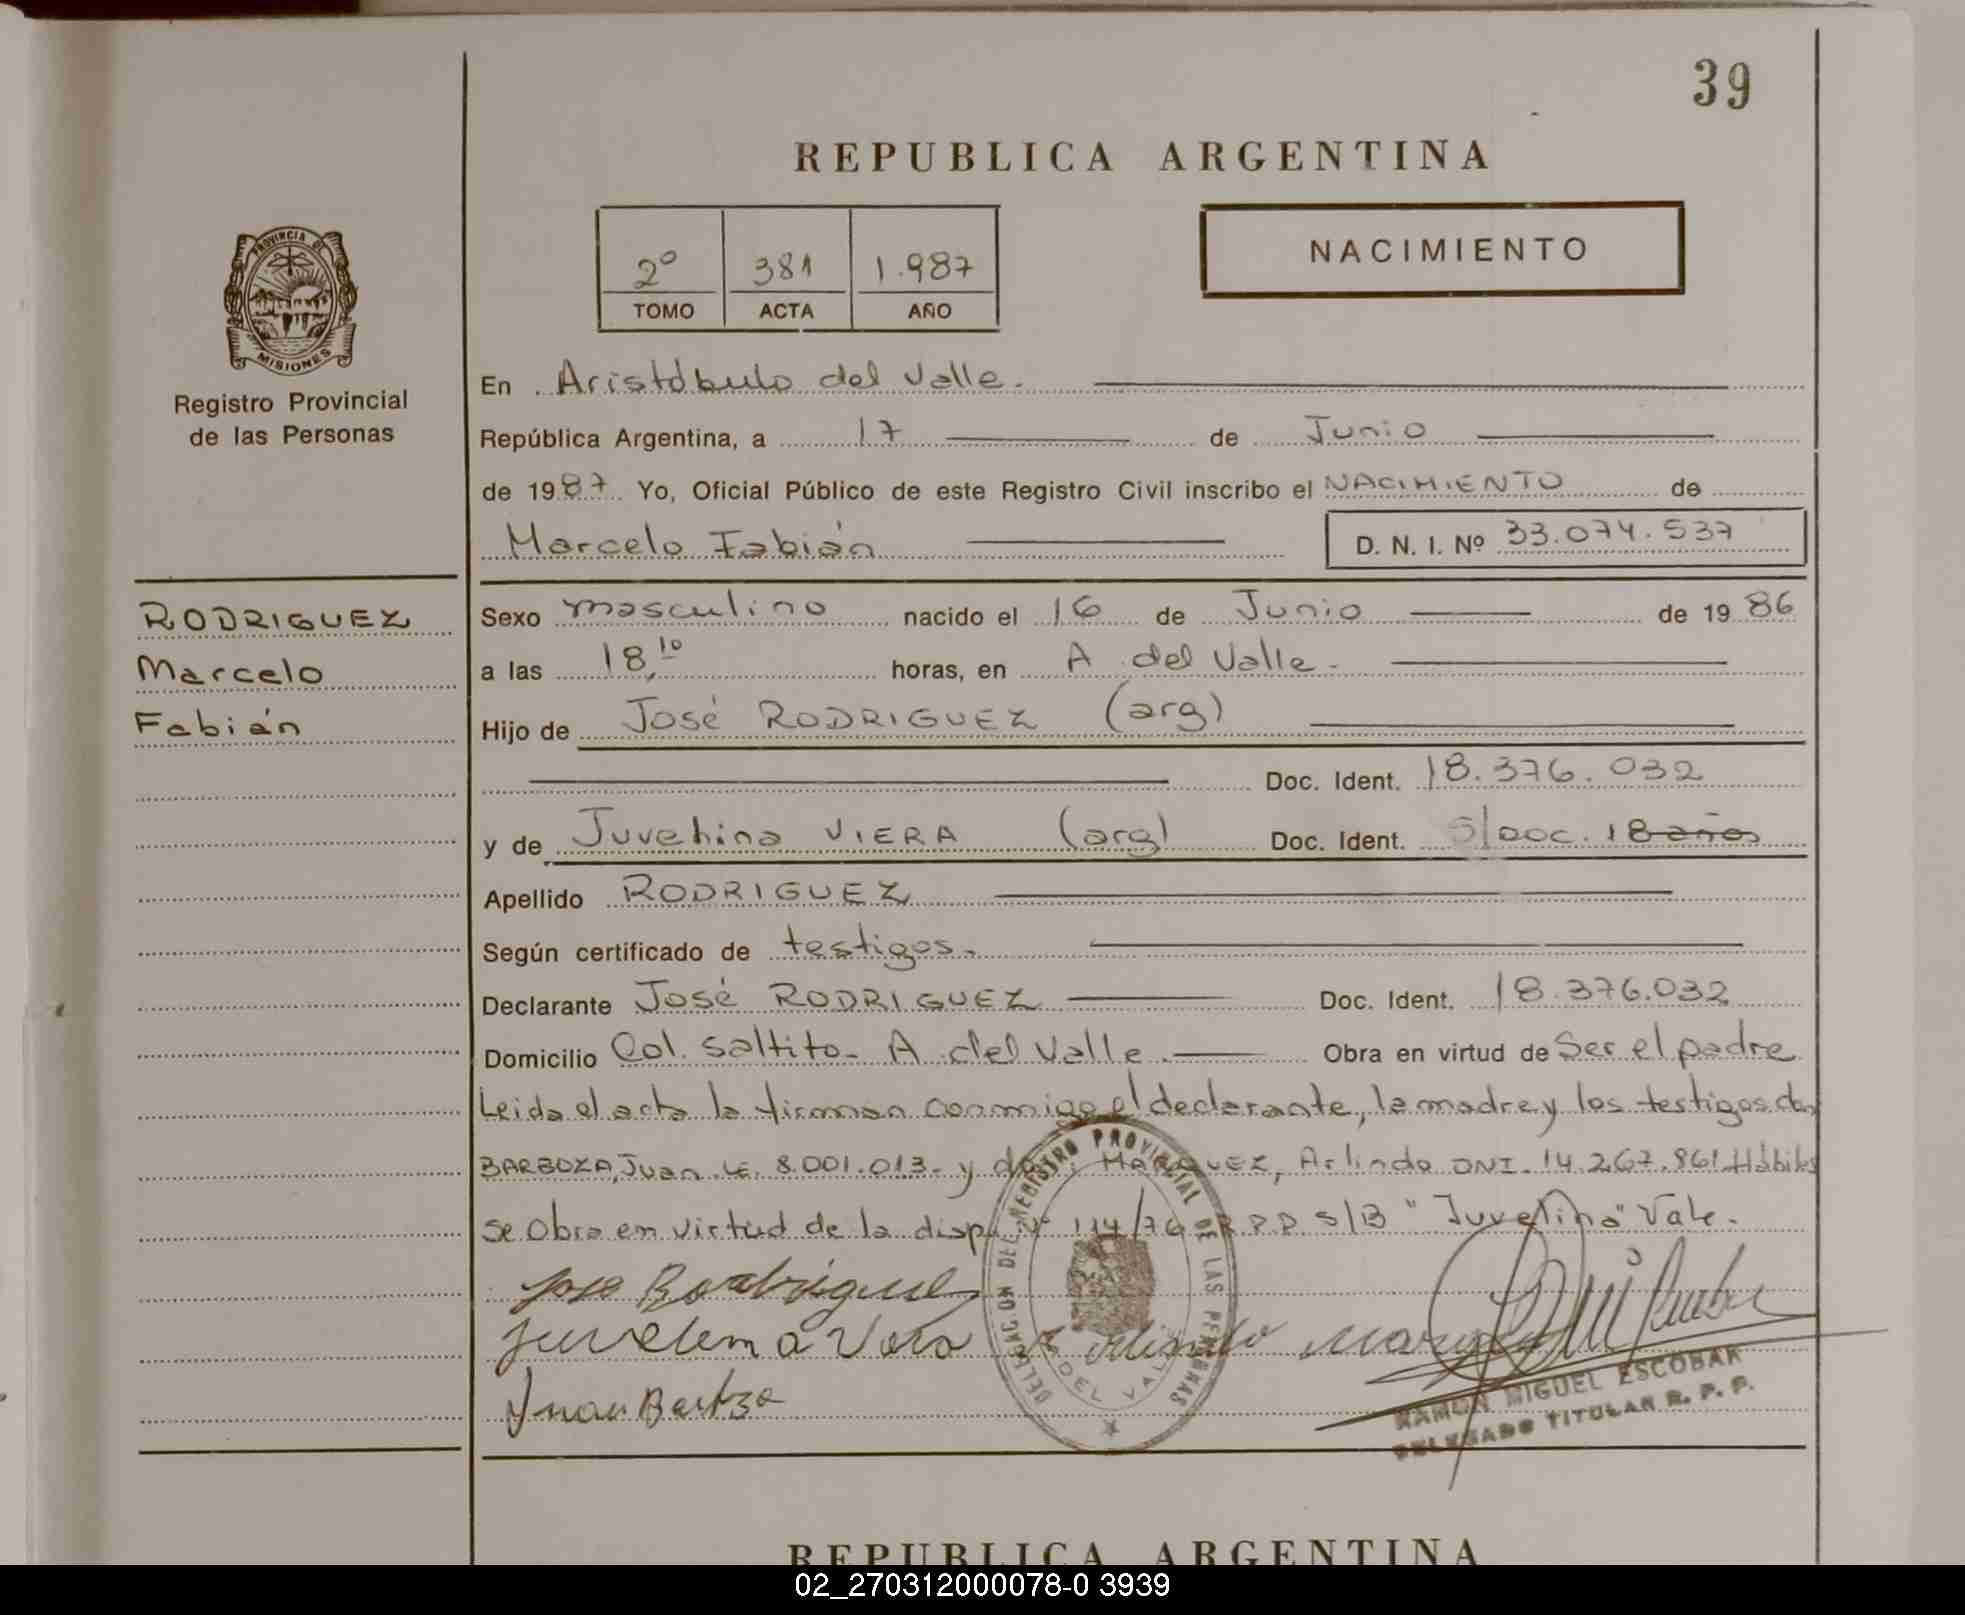 39
REPUBLICA ARGENTINA
2º 381 1.987
TOMO ACTA AÑO
NACIMIENTO
PROVINCIA DE
MISIONES
Registro Provincial
de las Personas
En Aristóbulo del Valle.
República Argentina, a 17 de Junio
de 1987 Yo, Oficial Público de este Registro Civil inscribo el NACIMIENTO de
Marcelo Fabián D. N. I. Nº 33.074.537
RODRIGUEZ
Marcelo
Fabián
Sexo masculino nacido el 16 de Junio de 1986
a las 18,10 horas, en A del Valle.
Hijo de José RODRIGUEZ (arg)
Doc. Ident. 18.376.032
y de Juvelina VIERA (arg) Doc. Ident. S/doc. 18 años
Apellido RODRIGUEZ
Según certificado de testigos.
Declarante José RODRIGUEZ Doc. Ident. 18.376.032
Domicilio Col. Saltito. A del Valle. Obra en virtud de Ser el padre
Leida el acta la firman conmigo el declarante, la madre y los testigos don
BARBOZA, Juan. LE. 8.001.013. y don MARQUEZ, Arlindo DNI. 14.267.861. Hábiles
se Obra en virtud de la disp. Nº 114/76 R.P.P. S/B "Juvelina" Vale.
Jose Rodriguez
Arlindo
DELEGACION DEL REGISTRO PROVINCIAL DE LAS PERSONAS
DEL VALLE
RAMON MIGUEL ESCOBAR
DELEGADO TITULAR R. P. P.
REPUBLICA ARGENTINA
02_270312000078-0 3939